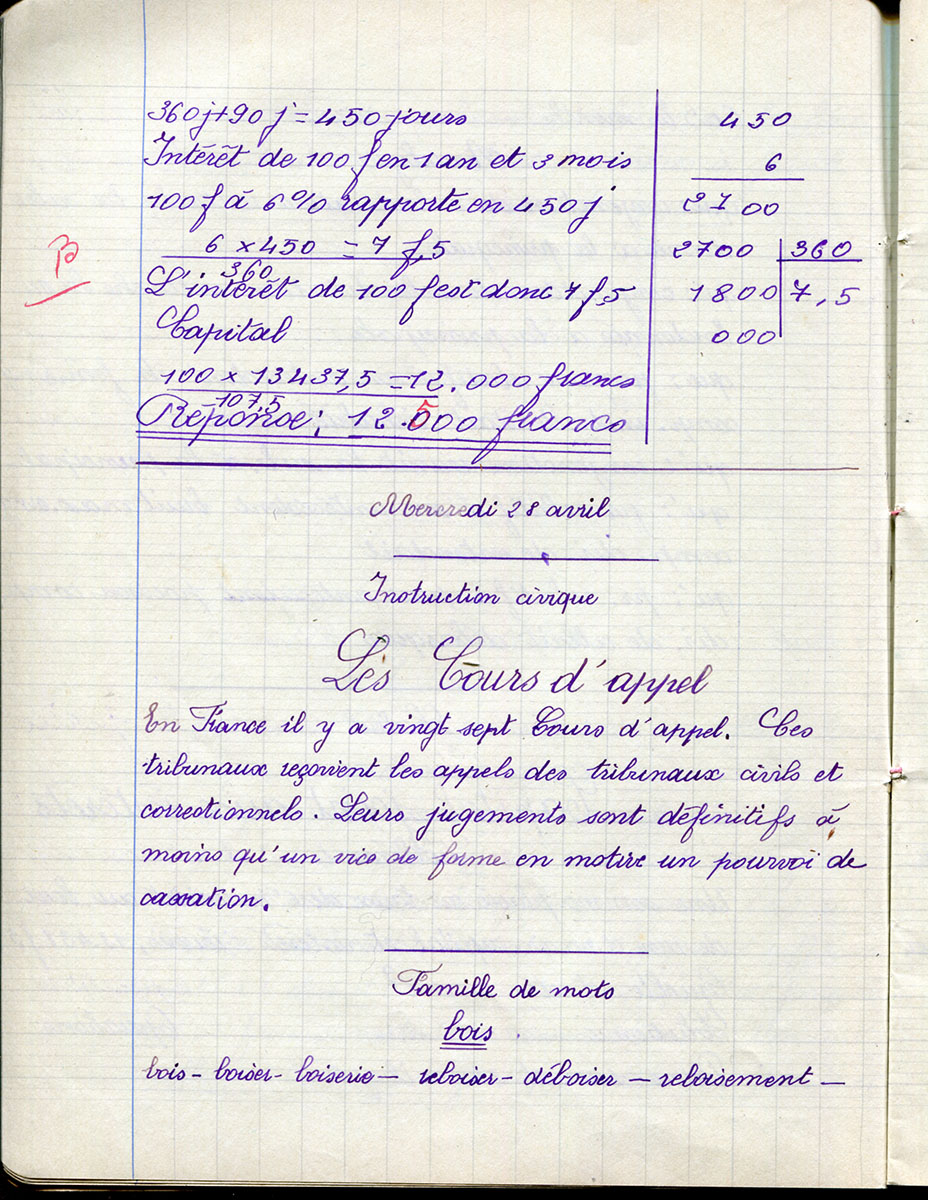 360j+90j=450jours
Intérêt de 100 f en 1 an et 3 mois
100 f à 6% rapporte en 450 j
6 × 450 = 7 f,5
360
L'intérêt de 100 f est donc 7 f,5
Capital
100 × 13437,5 = 12.000 francs
107,5
Réponse : 12.500 francs
450
6
2700
2700 360
1800 7,5
000
B
Mercredi 28 avril
Instruction civique
Les Cours d'appel
En France il y a vingt sept Cours d'appel. Ces
tribunaux reçoivent les appels des tribunaux civils et
correctionnels. Leurs jugements sont définitifs à
moins qu'un vice de forme en motive un pourvoi de
cassation.
Famille de mots
bois
bois - boiser - boiserie - reboiser - déboiser - reboisement -